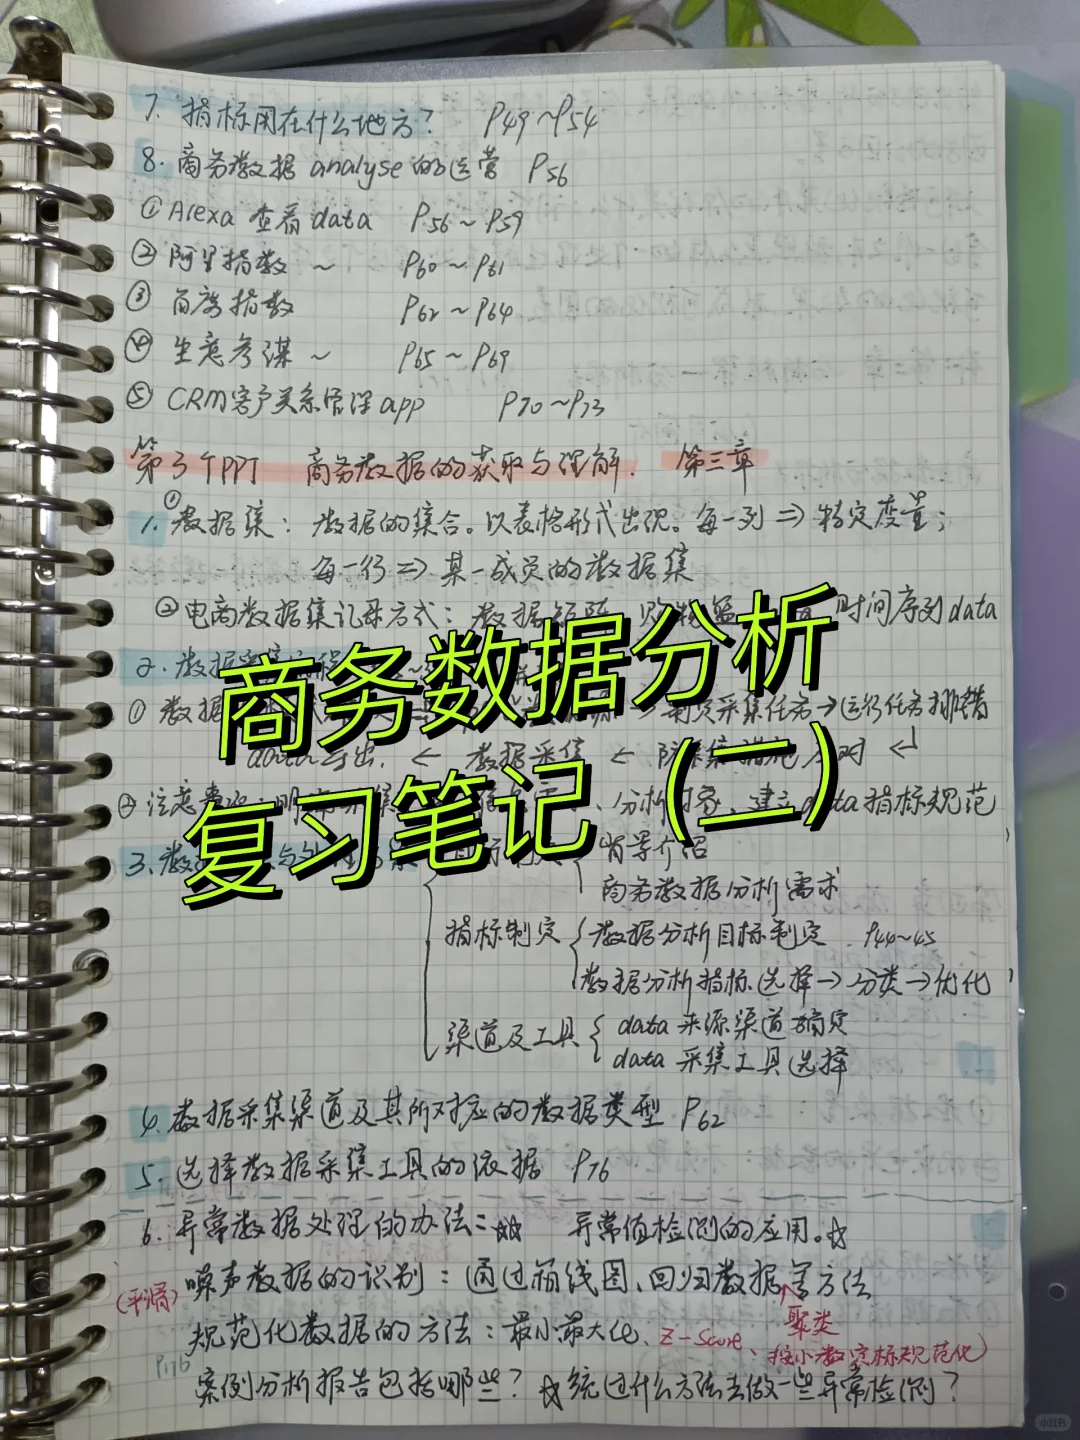 7. 指标用在什么地方? P49~P54
8. 商务数据 analyse的运营 P56
① Alexa 查看data P56~P59
② 阿里指数 ~ P60~P61
③ 百度指数 P62~P64
④ 生意参谋 ~ P65~P69
⑤ CRM客户关系管理app P70~P73
第3个PPT 商务数据的获取与理解. 第三章
1. ①数据集: 数据的集合。以表格形式出现。每一列 ⇒ 特定变量;
每一行 ⇒ 某一成员的数据集
②电商数据集记录方式: 数据矩阵、 时间序列data
商务数据分析
2. 数据采集
① 数据 → 制定采集任务→运行任务排错
data导出. ← 数据采集 ←
复习笔记 (二)
② 注意事项: 、分析对象、建立data指标规范
3. 数 与处理 背景介绍
商务数据分析需求
指标制定 { 数据分析目标制定. P44~45
数据分析指标选择→分类→优化
渠道及工具 { data 来源渠道确定
data 采集工具选择
4. 数据采集渠道及其所对应的数据类型 P62
5. 选择数据采集工具的依据 P76
6. 异常数据处理的办法: ☆☆ 异常值检测的应用。☆
(平滑) 噪声数据的识别: 通过箱线图、回归数据等方法
聚类
规范化数据的方法: 最小最大化、Z-Score、按小数定标规范化)
P176 案例分析报告包括哪些? ☆ 统过什么方法去做一些异常检测?
小红书